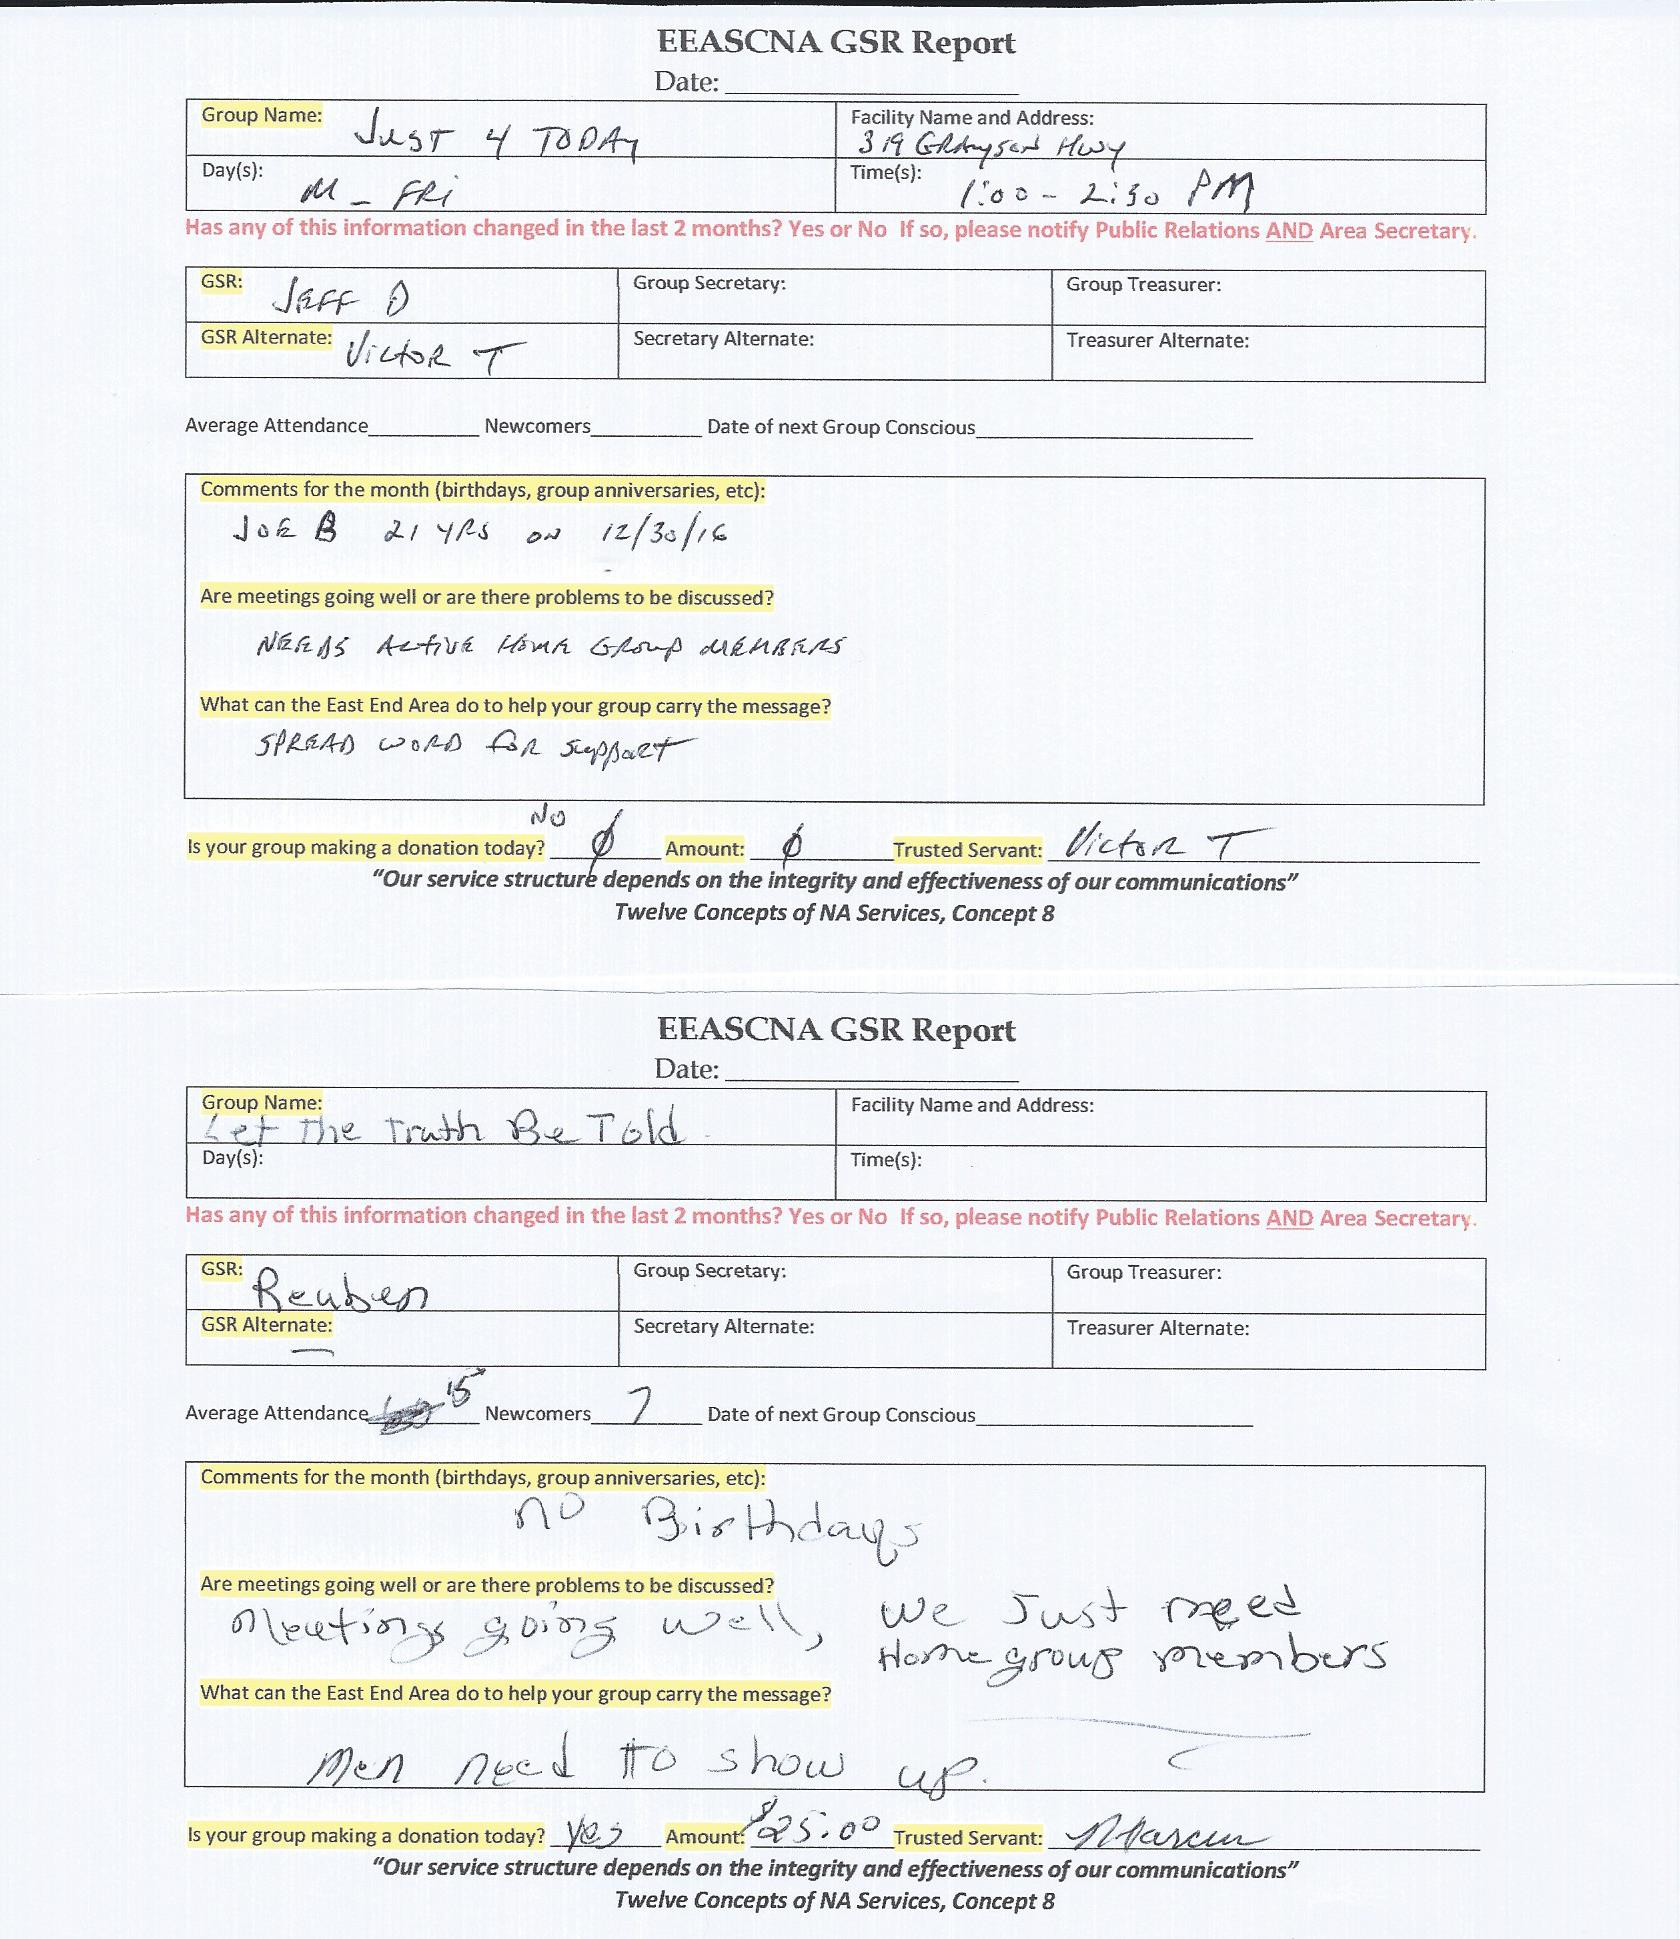 EEASCNA GSR Report
Date:
Group Name: JUST 4 TODAY
Facility Name and Address:
319 GRAYSON HWY
Day(s): M - FRI
Time(s): 1:00 - 2:30 PM
Has any of this information changed in the last 2 months? Yes or No If so, please notify Public Relations AND Area Secretary.
GSR: JEFF D
Group Secretary:
Group Treasurer:
GSR Alternate: VICTOR T
Secretary Alternate:
Treasurer Alternate:
Average Attendance Newcomers Date of next Group Conscious
Comments for the month (birthdays, group anniversaries, etc):
JOE B 21 YRS ON 12/30/16
Are meetings going well or are there problems to be discussed?
NEEDS ACTIVE HOME GROUP MEMBERS
What can the East End Area do to help your group carry the message?
SPREAD WORD FOR SUPPORT
NO
Is your group making a donation today? ∅ Amount: ∅ Trusted Servant: Victor T
"Our service structure depends on the integrity and effectiveness of our communications"
Twelve Concepts of NA Services, Concept 8
EEASCNA GSR Report
Date:
Group Name:
Let The Truth Be Told
Facility Name and Address:
Day(s):
Time(s):
Has any of this information changed in the last 2 months? Yes or No If so, please notify Public Relations AND Area Secretary.
GSR: Reuben
Group Secretary:
Group Treasurer:
GSR Alternate: —
Secretary Alternate:
Treasurer Alternate:
Average Attendance 15 Newcomers 7 Date of next Group Conscious
Comments for the month (birthdays, group anniversaries, etc):
no Birthdays
Are meetings going well or are there problems to be discussed?
Meetings going well, we Just need
Home group members
What can the East End Area do to help your group carry the message?
Men need to show up.
Is your group making a donation today? yes Amount: $25.00 Trusted Servant:
"Our service structure depends on the integrity and effectiveness of our communications"
Twelve Concepts of NA Services, Concept 8